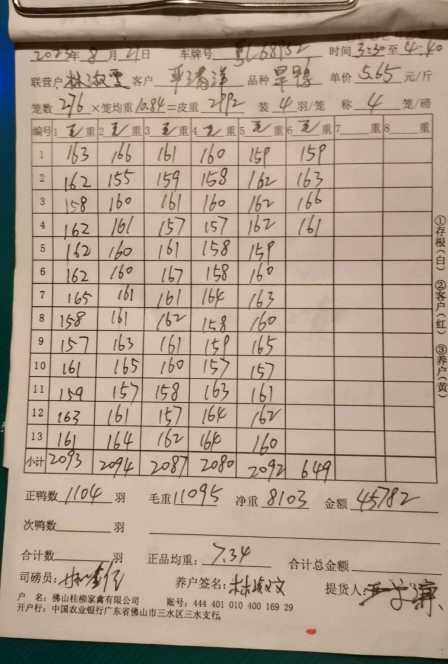 2025年8月21日 车牌号 时间3:30至4:40
联营户林淑雯 客户 品种旱鸭 单价5.65元/斤
笼数276×笼均重10.84=皮重2992 装4羽/笼 称4笼/磅
编号 1毛/重 2毛/重 3毛/重 4毛/重 5毛/重 6毛/重 7 重 8 重
1 163 166 161 160 159 159
2 162 155 159 158 162 163
3 158 160 161 160 162 166
4 162 161 157 157 162 161
5 162 160 161 158 159
6 162 160 167 158 160
7 165 161 161 164 163
8 158 161 162 158 160
9 157 163 161 159 165
10 161 165 160 157 157
11 159 157 158 163 161
12 163 161 157 164 162
13 161 164 162 164 160
小计 2093 2094 2087 2080 2092 649
①存根(白) ②客户(红) ③养户(黄)
正鸭数1104羽 毛重11095 净重8103 金额45782
次鸭数 羽
合计数 羽 正品均重:7.34 合计总金额
司磅员: 养户签名: 提货人:
户 名:佛山桂柳家禽有限公司 账号:444 401 010 400 169 29
开户行:中国农业银行广东省佛山市三水区三水支行